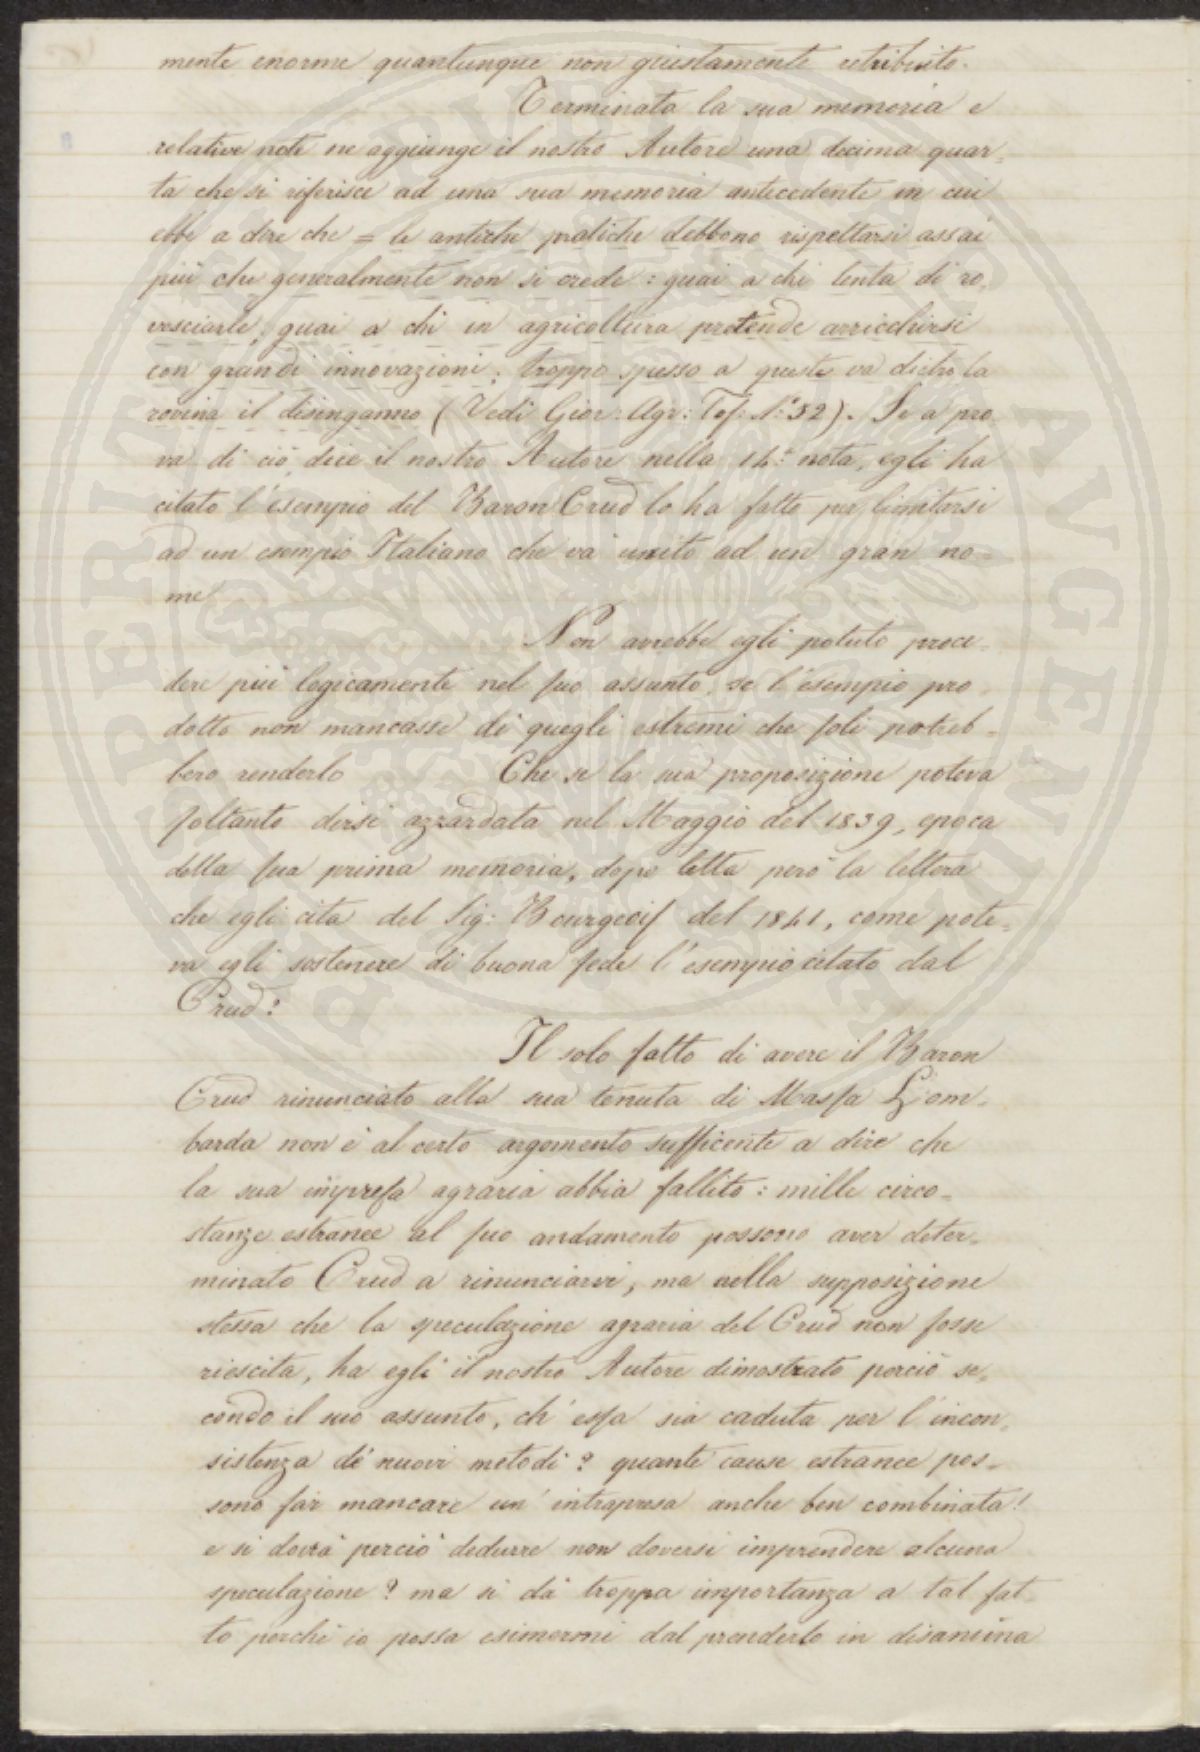 mente enorme quantunque non giustamente retribuito.
Terminata la sua memoria e
relative note ne aggiunge il nostro Autore una decima quar=
ta che si riferisce ad una sua memoria antecedente in cui
ebbe a dire che = le antiche pratiche debbono rispettarsi assai
più che generalmente non si crede: guai a chi tenta di ro=
vesciarle, guai a chi in agricoltura pretende arricchirsi
con grandi innovazioni; troppo spesso a queste va dietro la
rovina il disinganno (Vedi Gior: Agr: Tos: N.° 52). Se a pro
va di ciò, dice il nostro Autore nella 14.a nota, egli ha
citato l'esempio del Baron Crud lo ha fatto per limitarsi
ad un esempio Italiano che va unito ad un gran no=
me
Non avrebbe egli potuto proce=
dere più logicamente nel suo assunto, se l'esempio pro
dotto non mancasse di quegli estremi che soli potreb=
bero renderlo Che se la sua proposizione poteva
soltanto dirsi azzardata nel Maggio del 1839, epoca
della sua prima memoria, dopo letta però la lettera
che egli cita del Sig: Bourgeois del 1841, come pote=
va egli sostenere di buona fede l'esempio citato dal
Crud?
Il solo fatto di avere il Baron
Crud rinunciato alla sua tenuta di Massa Lom=
barda non è al certo argomento sufficente a dire che
la sua impresa agraria abbia fallito: mille circo=
stanze estranee al suo andamento possono aver deter=
minato Crud a rinunciarvi, ma nella supposizione
stessa che la speculazione agraria del Crud non fosse
riescita, ha egli il nostro Autore dimostrato perciò se=
condo il suo assunto, ch'essa sia caduta per l'incon=
sistenza de' nuovi metodi? quante cause estranee pos=
sono far mancare un' intrapresa anche ben combinata!
e si dovrà perciò dedurre non doversi imprendere alcuna
speculazione? ma si dà troppa importanza a tal fat=
to perchè io possa esimermi dal prenderlo in disamina
PERITIA PVBLICAE AVGENDAE